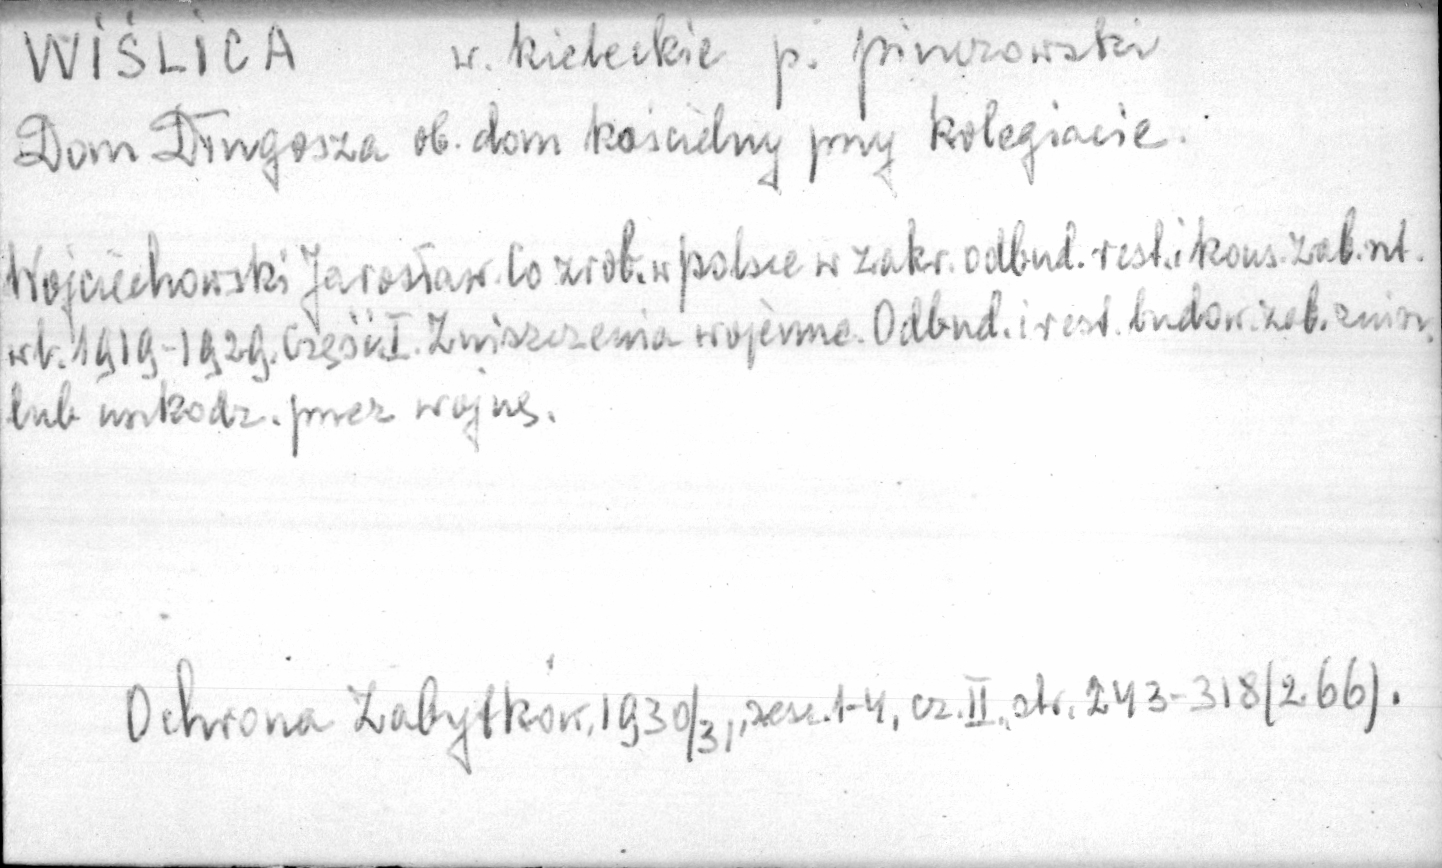 WIŚLICA w. kieleckie p. pinczowski
Dom Długosza ob. dom kościelny przy kolegiacie.
Wojciechowski Jarosław. Co zrob. w Polsce w zakr. odbud. rest. i kons. zab. nt.
w l. 1919-1929. Część I. Zniszczenia wojenne. Odbud. i rest. budow. zab. zniszcz.
lub uszkodz. przez wojnę.
Ochrona Zabytków, 1930/31, zesz. 1-4, cz. II, str. 243-318 (266).